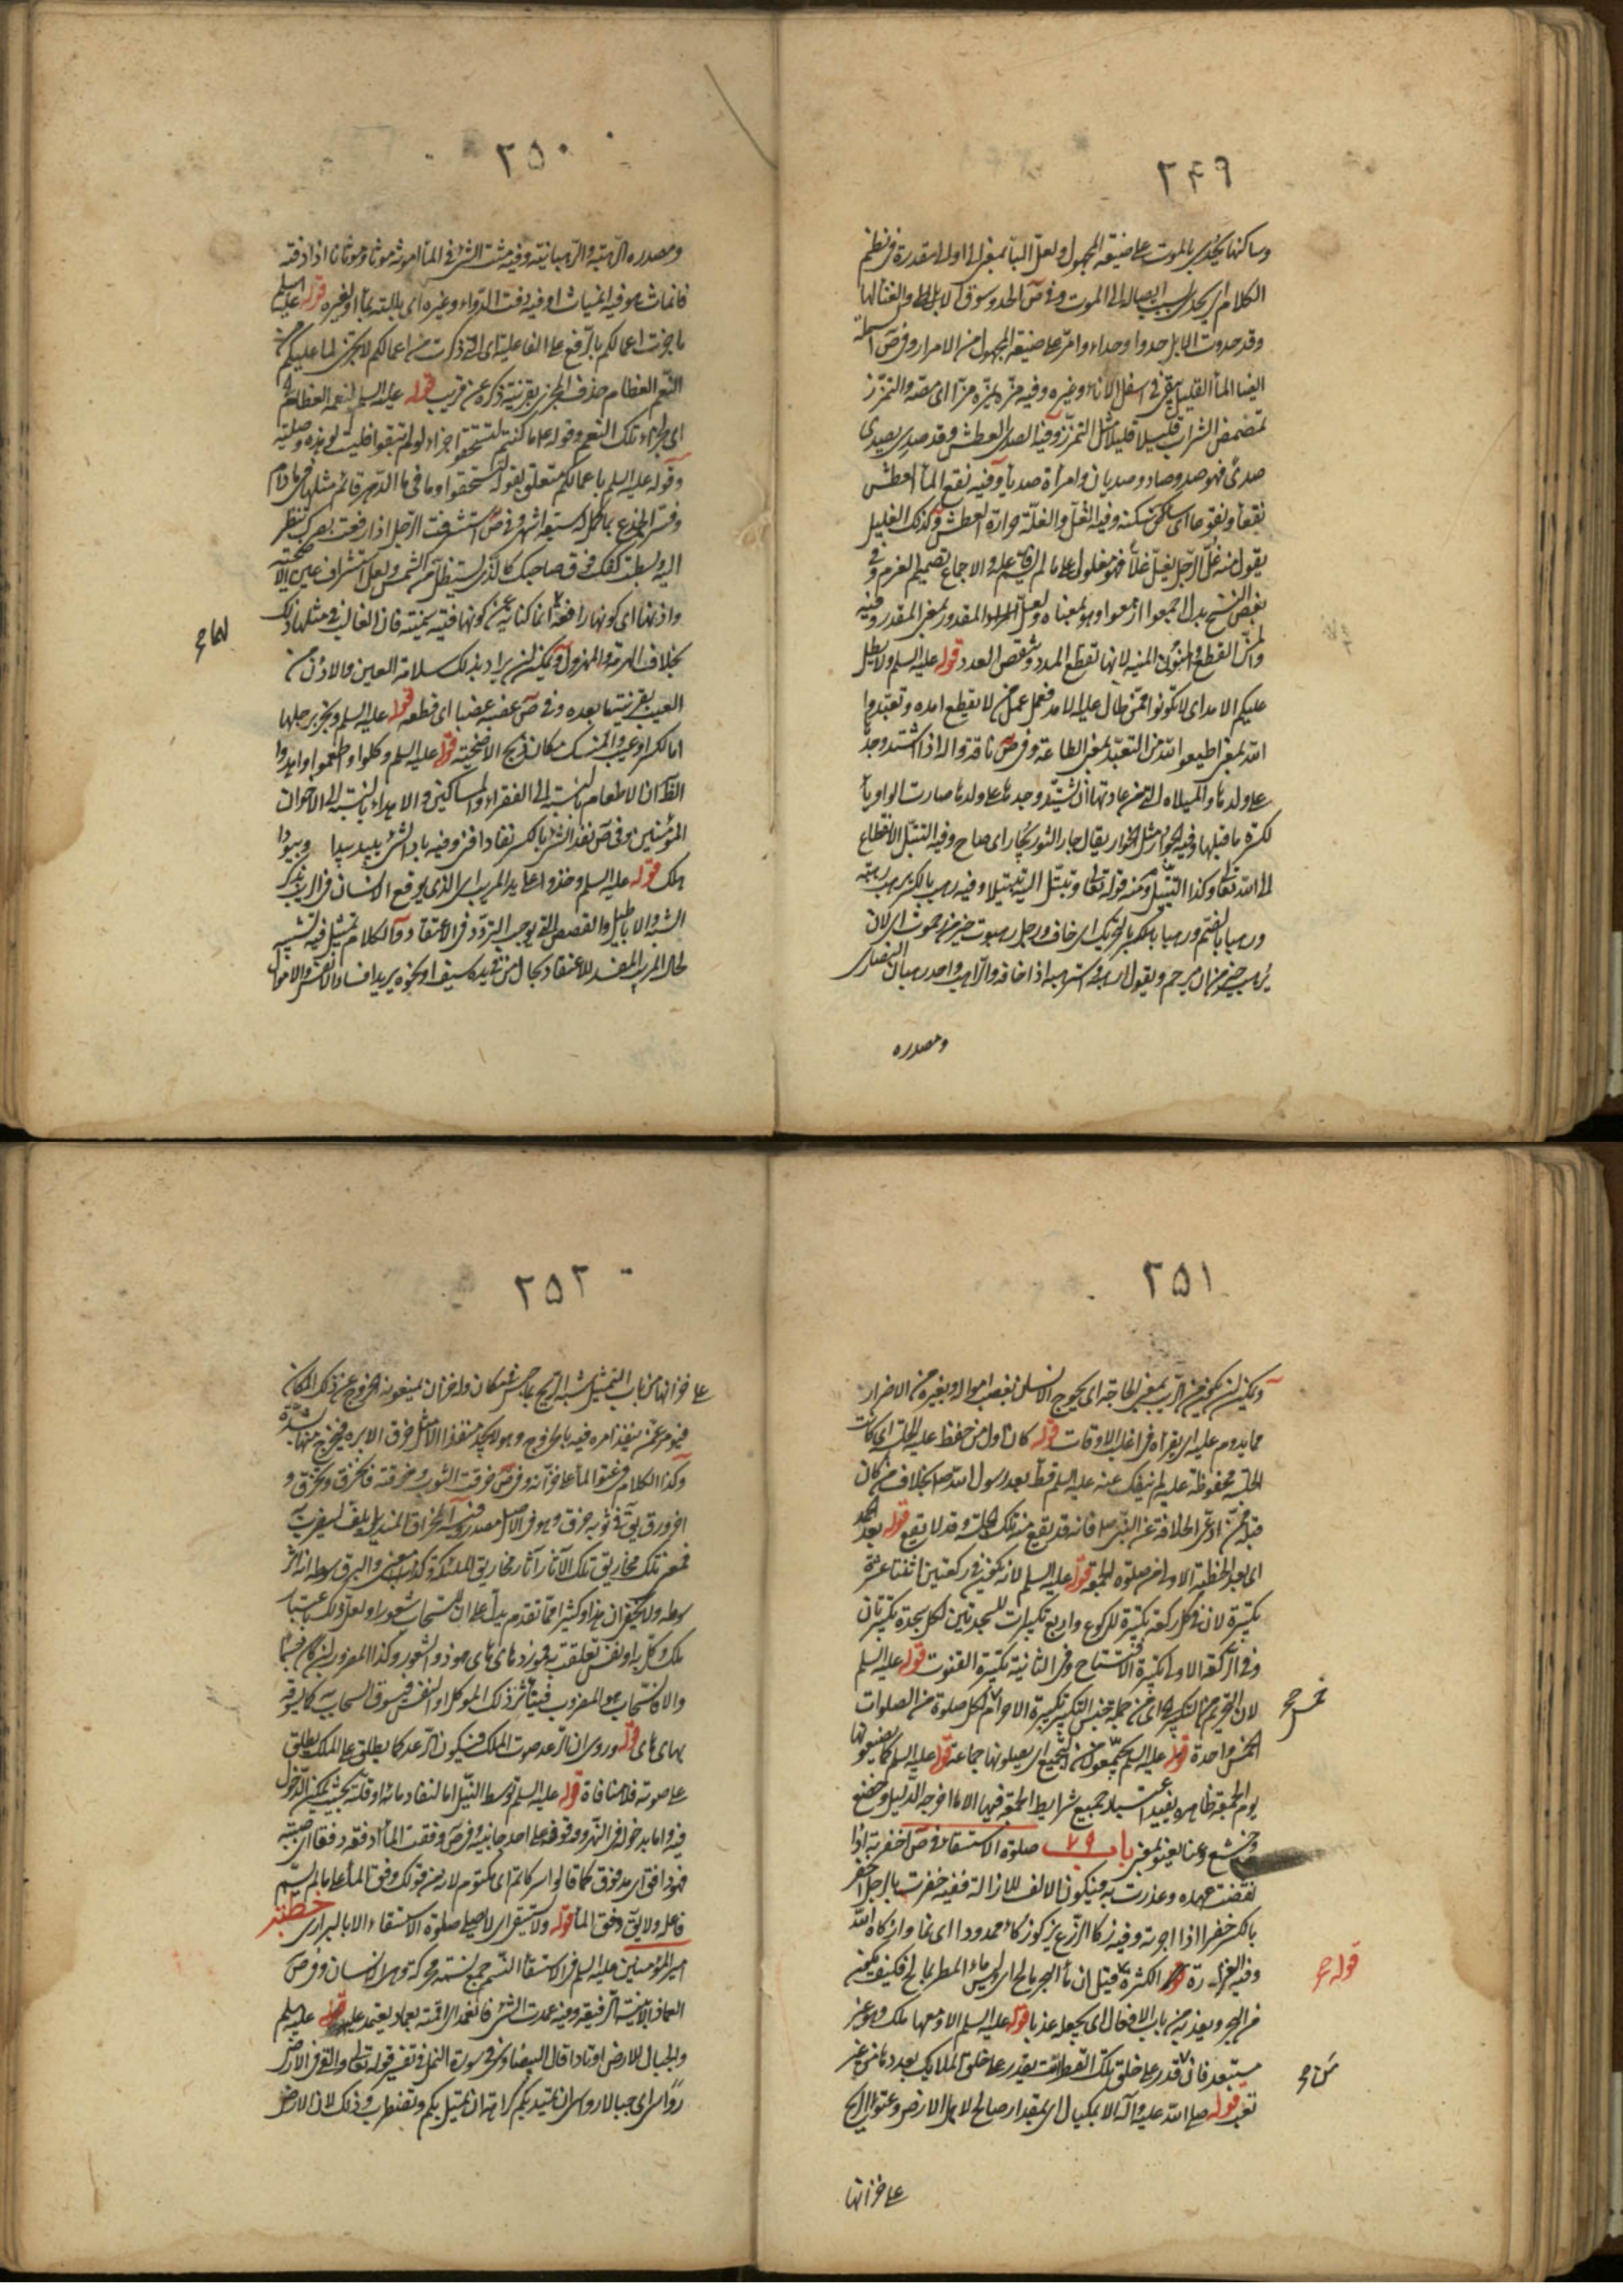 ٢٤٩
وساكنها يحدى بالموت على صيغة المجهول ولعل الباء بمعنى الى او اللام مقدرة في نظم
الكلام اى يحدى بسبب ايصاله الى الموت وفي ص الحدو سوق الابل والغناء لها
وقد حدوت الابل حدوا وحداء وامر على صيغة المجهول من الامرار وفي ص السملة
ايضا الماء القليل يبقى في اسفل الاناء وغيره وفيه مزّه يمزّه مزّا اى مصّه والتمزّز
تمصّص الشراب قليلا قليلا مثل التمزّر وفيه الصدى العطش وقد صدى يصدى
صدى فهو صد وصاد وصديان وامرأة صديا وفيه نقع الماء العطش
نقعا ونقوعا اى سكنه وفيه الغل والغلّة حرارة العطش وكذلك الغليل
يقول منه غلّ الرجل يغلّ غلّا فهو مغلول على ما لم يسمّ فاعله والاجماع تصميم العزم وفي
بعض النسخ بدل اجمعوا ازمعوا وهو بمعناه ولعل المقدور بمعنى المقدر وفيه
والمنّ القطع والمنون المنية لانها تقطع المدد وتنقص العدد قوله عليه السلم ولا يطل
عليكم الامد اى لا تكونوا كمن طال عليه الامد فعمل عمل من لا يقطع امده وتعبّدوا
الله بمعنى اطيعوا الله من التعبّد بمعنى الطاعة وفي ص ناقة واله اذا اشتد وجدها
على ولدها والميلاه التي من عادتها ان تشتد وجدها على ولدها صارت الواو ياء
لكسرة ما قبلها وفيه الجؤار مثل الخوار يقال جار الثور يجار اى صاح وفيه التبتّل الانقطاع
الى الله تعالى وكذا التبتيل ومنه قوله تعالى وتبتّل اليه تبتيلا وفيه رهب بالكسر يرهب رهبة
ورهبا بالضم ورهبا بالتحريك اى خاف ورجل رهبوت خير من رحموت اى لان
يرهب خير من ان يرحم ويقول ارهبه واسترهبه اذا اخافه والراهب واحد رهبان النصارى
ومصدره
٢٥٠
ومصدره الرهبة والرهبانية وفيه مثت الشئ في الماء اموثه موثا وموثانا اذا دفته
فانماث هو فيه انمياثا وفيه دفت الدواء وغيره اى بللته بماء او بغيره قوله عليه السلم
ما جزت اعمالكم بالرفع على الفاعلية اى التي ذكرت من اعمالكم لا تجزى لما عليكم من
النعم العظام حذف المجزى بقرينة ذكره عن قريب قوله عليه السلم لنعمه العظام
اى جزاء تلك النعم وقوله ما كنتم لتستحقوا جزاء لو لم تبقوا
وقوله عليه السلم باعمالكم متعلق بقوله لتستحقوا وما في ما الدهر قائم مثلها في مادام
وفسر الجذع بما كمل له ستة اشهر وفي ص استشرفت الرجل اذا رفعت بصرك تنظر
اليه وبسطت كفك فوق حاجبك كالذى يستظل من الشمس ولعل استشراف عين الاضحية
واذنها اى كونها رافعة انما كناية عن كونها فتية سمينة فان الغالب في مثلها ذلك
لهما ح
بخلاف الهرمة والمهزول ويمكن ان يراد بذلك سلامة العين والاذن من
العيب بقرينة ما بعده وفي ص عضبه عضبا اى قطعه قوله عليه السلم وتجر برجلها
اما لكسر او عيب والمنسك مكان ذبح الاضحية قوله عليه السلم وكلوا واطعموا واهدوا
الظ ان الاطعام بالنسبة الى الفقراء والمساكين والاهداء بالنسبة الى الاخوان
المؤمنين وفي ص نفد الشئ بالكسر نفادا فنى وفيه باد الشئ يبيد بيدا وبيودا
هلك قوله عليه السلم وخذوا على يد المريب اى الذى يوقع الانسان في الريب بذكر
الشبه والاباطيل والقصص التي يوجب التردد في الاعتقاد والكلام تمثيل فيه تشبيه
لحال المريب المفسد للاعتقاد بحال من بيده سيف او نحوه يريد افساد الانفس والاموال
٢٥١
ويمكن ان يكون من الريب بمعنى الحاجة اى يحوج الانسان بغصب امواله او بغيره من الاضرار
مما يدوم عليه اى يقراه في اغلب الاوقات قوله كان اول من حفظ عليه الجلسة اى كانت
الجلسة محفوظة عليه لم ينفك عنه عليه السلم قط بعد رسول الله ص بخلاف من كان
قبله ممن ادعى الخلافة عن النبى ص فانه قد يقع منه تلك الجلسة وقد لا يقع قوله بعد الحمد
اى بعد الخطبة الاولى من صلوة الجمعة قوله عليه السلم لانه يكون في ركعتين اثنتا عشرة
تكبيرة لان في كل ركعة تكبيرة للركوع واربع تكبيرات للسجدتين لكل سجدة تكبيرتان
وفي الركعة الاولى تكبيرة الافتتاح وفي الثانية تكبيرة القنوت قوله عليه السلم
لان التحريم من التكبير اى من جملة جنس التكبير تكبيرة الاحرام لكل صلوة من الصلوات
خمس ح
الخمس واحدة قوله عليه السلم يجمّعون من التجميع اى يصلونها جماعة قوله عليه السلم كما يصنعونها
يوم الجمعة ظاهره يفيد اعتبار جميع شرايط الجمعة فيها الا ما اخرجه الدليل وخضع
وخشع وعنا يعنو بمعنى باب ٧٩ صلوة الاستسقاء في ص اخفرته اذا
نقضت عهده وغدرت به فيكون الالف للازالة ففيه خفرت بالرجل اخفر
بالكسر خفرا اذا اجرته وفيه زكا الزرع يزكو زكاء ممدودا اى نما وازكاه الله
وفيه الغزارة الكثرة قيل ان ماء البحر مالح اى وليس ماء المطر بمالح فكيف يكون
قوله ح
من البحر ويعذبه من باب الافعال اى يجعله عذبا قوله عليه السلم الا ومعها ملك وهو غير
مستبعد فان من قدر على خلق تلك القطرات يقدر على خلق الملايك بعددها من غير
من ح
تعب قوله صلى الله عليه وآله الا بمكيال اى بمقدار صالح لاهل الارض وعتو الريح
على خزانها
٢٥٢
على خزانها من باب التمثيل شبه الريح بما حبس في مكان وله خزان يمنعونه الخروج عن ذلك المكان
فيؤمر عمّن ينفذ امره فيه بالخروج وهو لا يجد منفذا الا مثل خرق الابرة فيخرج منها بشدة
وكذا الكلام في عتو الماء على خزانه وفي ص خرقت الثوب وخرقته فانخرق وتخرق و
اخرورق يق في ثوبه خرق وهو في الاصل مصدر وفيه المخراق المنديل يلف ليضرب به
فمعنى تلك مخاريق تلك الآثار آثار مخاريق الملئكة وكذلك معنى والبرق سوطه انه اثر
سوطه ولا يخفى ان هذا وكثيرا مما تقدم يدل على ان للسحاب شعورا ولعل ذلك باعتبار
ملك وكّل به او نفس تعلقت به
والا فالسحاب هو المضروب فيتأثر ذلك الموكل او النفس فيسوق السحاب به كما يسوقه
بهاى هاى قوله وروى ان الرعد صوت الملك فيكون الرعد كما يطلق على الملك يطلق
على صوته فلا منافاة قوله عليه السلم توسط النيل اما لنفاد مائه او قلته بحيث يمكن الدخول
فيه واما بدخوله في النهر ووقوفه على احد جانبيه وفي ص دفقت الماء ادفقه دفقا اى صببته
فهو دافق اى مدفوق كما قالوا سر كاتم اى مكتوم لانه من قولك دفق الماء على ما لم يسمّ
فاعله ولا يق دفق الماء قوله ولا يستسقى اى لا يصلى صلوة الاستسقاء الا بالبرارى خطبة
امير المؤمنين عليه السلم في الاستسقاء النسم جمع نسمة محركة وهى الانسان وفي ص
العماد الابنية الرفيعة وفيه عمدت الشئ فانعمد اى اقمته بعماد يعتمد عليه قوله عليه السلم
والجبال للارض اوتادا قال البيضاوى في سورة النحل في تفسير قوله تعالى والقى في الارض
رواسى اى جبالا رواسى ان تميد بكم كراهة ان تميل بكم وتضطرب وذلك لان الارض